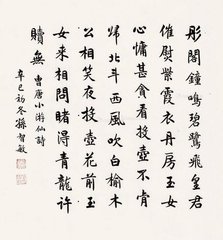 彤閣鐘鳴碧鷺飛皇君
催熨紫霞衣丹房玉女
心慵甚貪看投壺不肯
歸北斗西風吹白榆木
公相笑夜投壺花前玉
女來相問賭得青龍許
贖無 曹唐小游仙詩
辛巳初冬 孫智敏